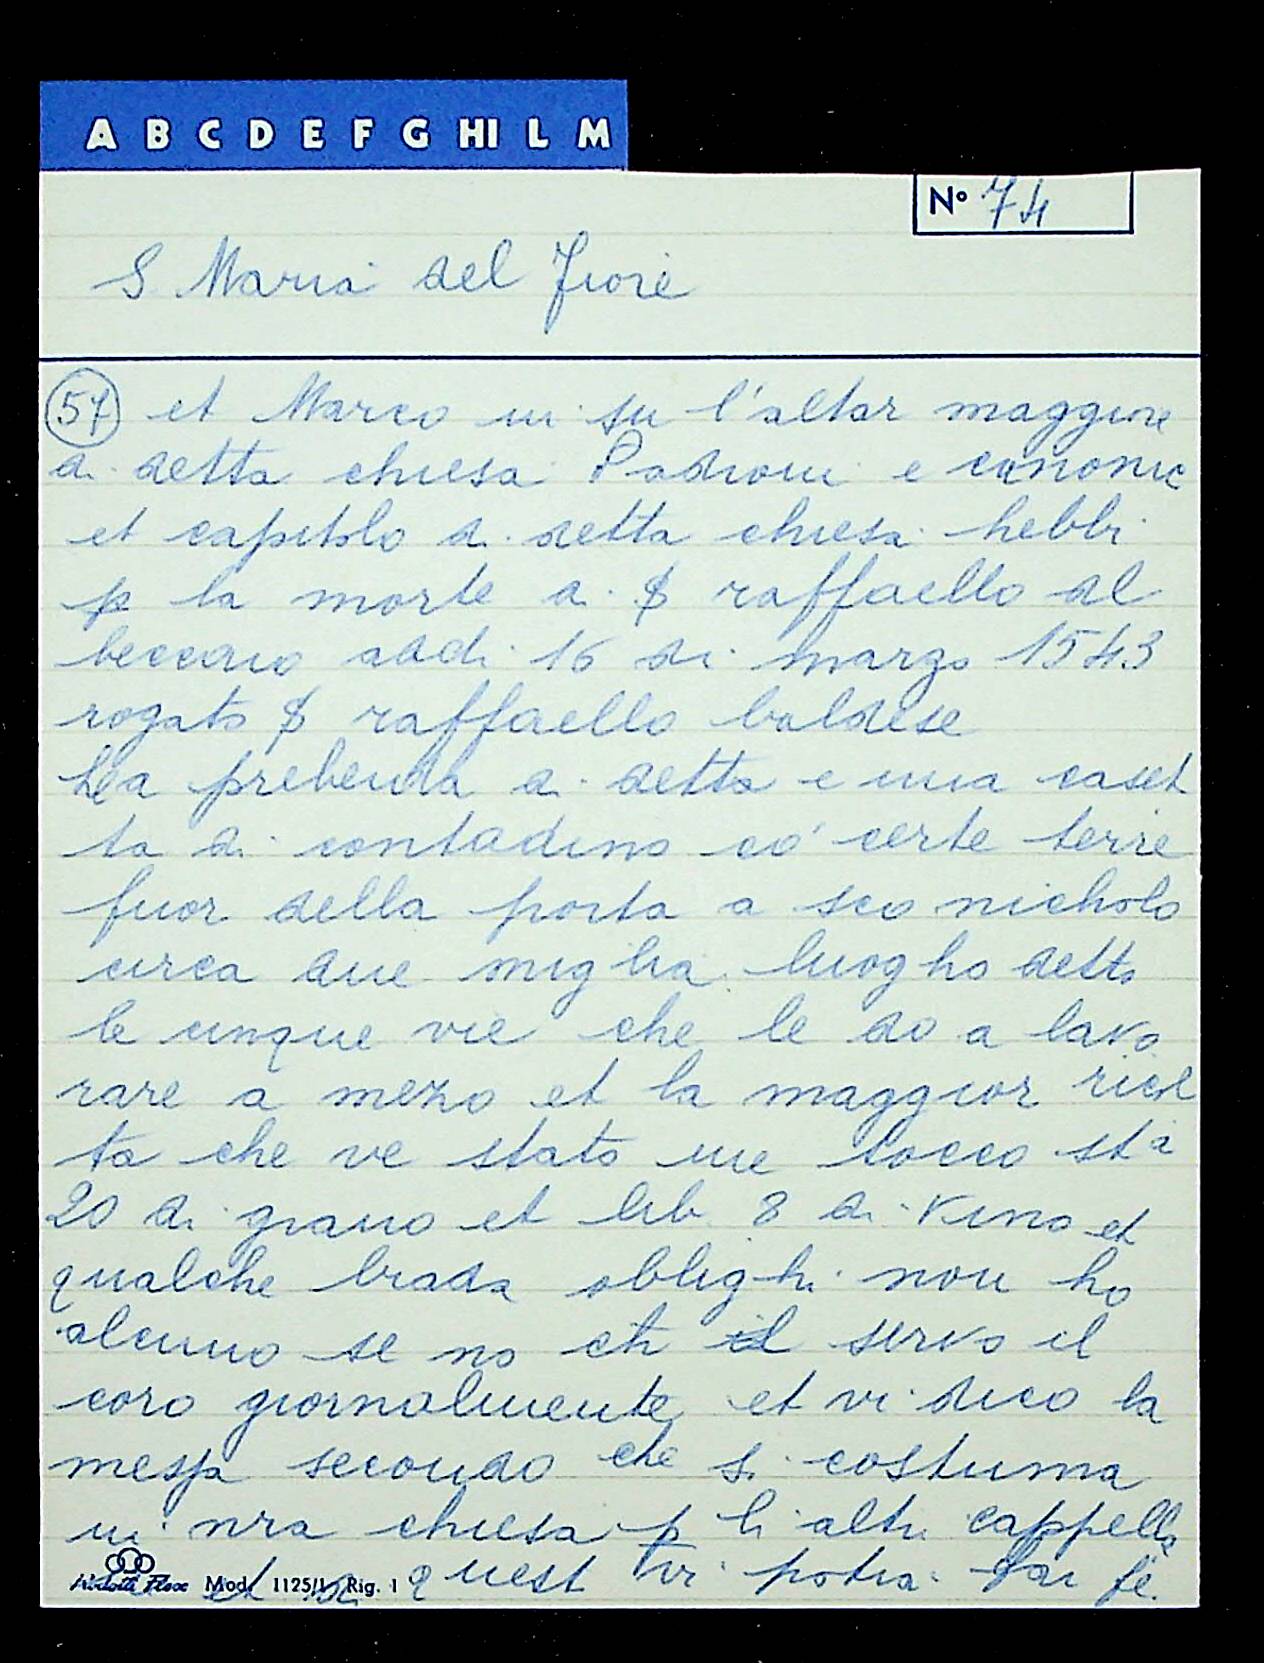 A B C D E F G HI L M
N° 74
S. Maria del Fiore
57 et Marco in su l'altar maggiore
di detta chiesa Padroni e canonic
et capitolo di detta chiesa hebbi
p la morte di $ raffaello al
beccaio addi 16 di marzo 1543
rogato $ raffaello baldese
La prebenda di detta e una caset
ta di contadino co' certe terre
fuor della porta a sco nicholo
circa due miglia luogho detto
le cinque vie che le do a lavo
rare a mezo et la maggior ricol
ta che ve stato me tocco sta
20 di grano et bib 8 di vino et
qualche biada oblighi non ho
alcuno se no ch il servo il
coro giornalmente et vi dico la
messa secondo che si costuma
in nra chiesa p li altri cappella
Mod. 1125/1 Rig. 1
et di quest vi potra far fe.